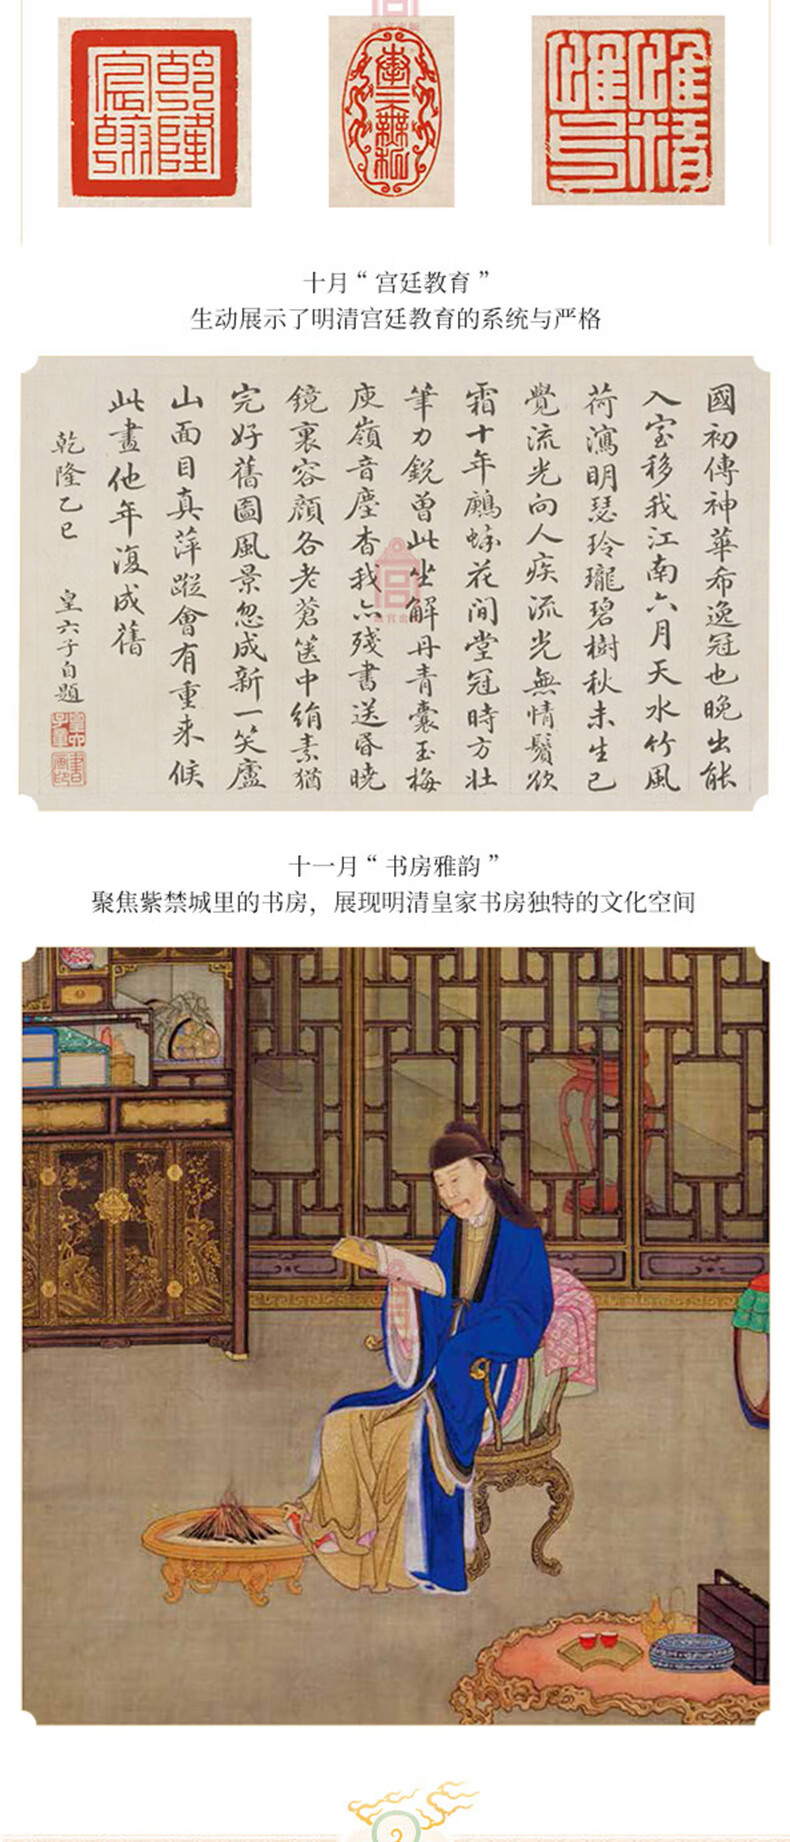 乾隆宸翰
奉三無私
惟精惟一
十月“宫廷教育”
生动展示了明清宫廷教育的系统与严格
國初傳神華希逸冠也晚出能
入室移我江南六月天水竹風
荷瀉明瑟玲瓏碧樹秋未生已
覺流光向人疾流光無情鬢欲
霜十年花間堂冠時方壯
筆力銳曾此坐解丹青囊玉梅
庾嶺音塵杳我亦殘書送昏曉
鏡裏容顏各老蒼篋中絹素猶
完好舊圖風景忽成新一笑廬
山面目真萍蹤會有重来候
此畫他年復成舊
乾隆乙巳 皇六子自題
十一月“书房雅韵”
聚焦紫禁城里的书房，展现明清皇家书房独特的文化空间
2